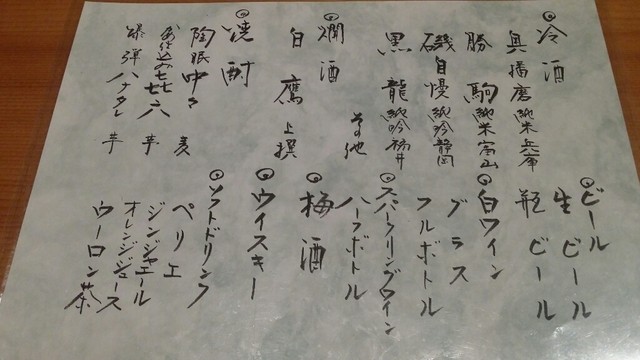 ◎冷酒
奥播磨 純米 兵庫
勝駒 純米 富山
磯自慢 純吟 静岡
黒龍 純吟 福井
その他
◎燗酒
白鷹 上撰
◎焼酎
陶眠中々 麦
七七六 芋
爆弾ハナタレ 芋
◎ビール
生ビール
瓶ビール
◎白ワイン
グラス
フルボトル
◎スパークリングワイン
ハーフボトル
◎梅酒
◎ウイスキー
◎ソフトドリンク
ペリエ
ジンジャエール
オレンジジュース
ウーロン茶